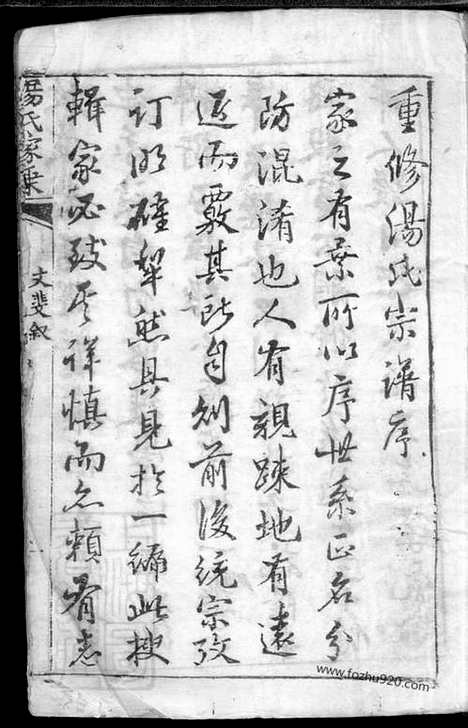 重修湯氏宗譜序
家之有乗所以序世系正名分
防混淆也人有親踈地有遠
近而覈其所自則前後統宗攷
訂明確犁然具見扵一編此搜
輯家必致其詳慎而亦頼有志
湯氏家乗
文斐叙
www.fozhu920.com